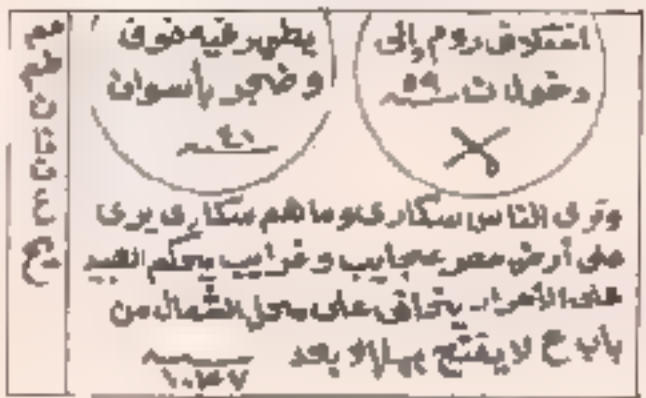 اختلاف روم إلى
دخول ت ٥٩
يظهر فيه فوق
وضجر بأسوان
٤١
وترى الناس سكارى وما هم سكارى يرى
على أرض مصر عجايب وغرايب يحكم العبيد
على الأحرار يخاف على محل الشمال من
باب ح لا يفتح بها إلا بعد
١٠٤٧